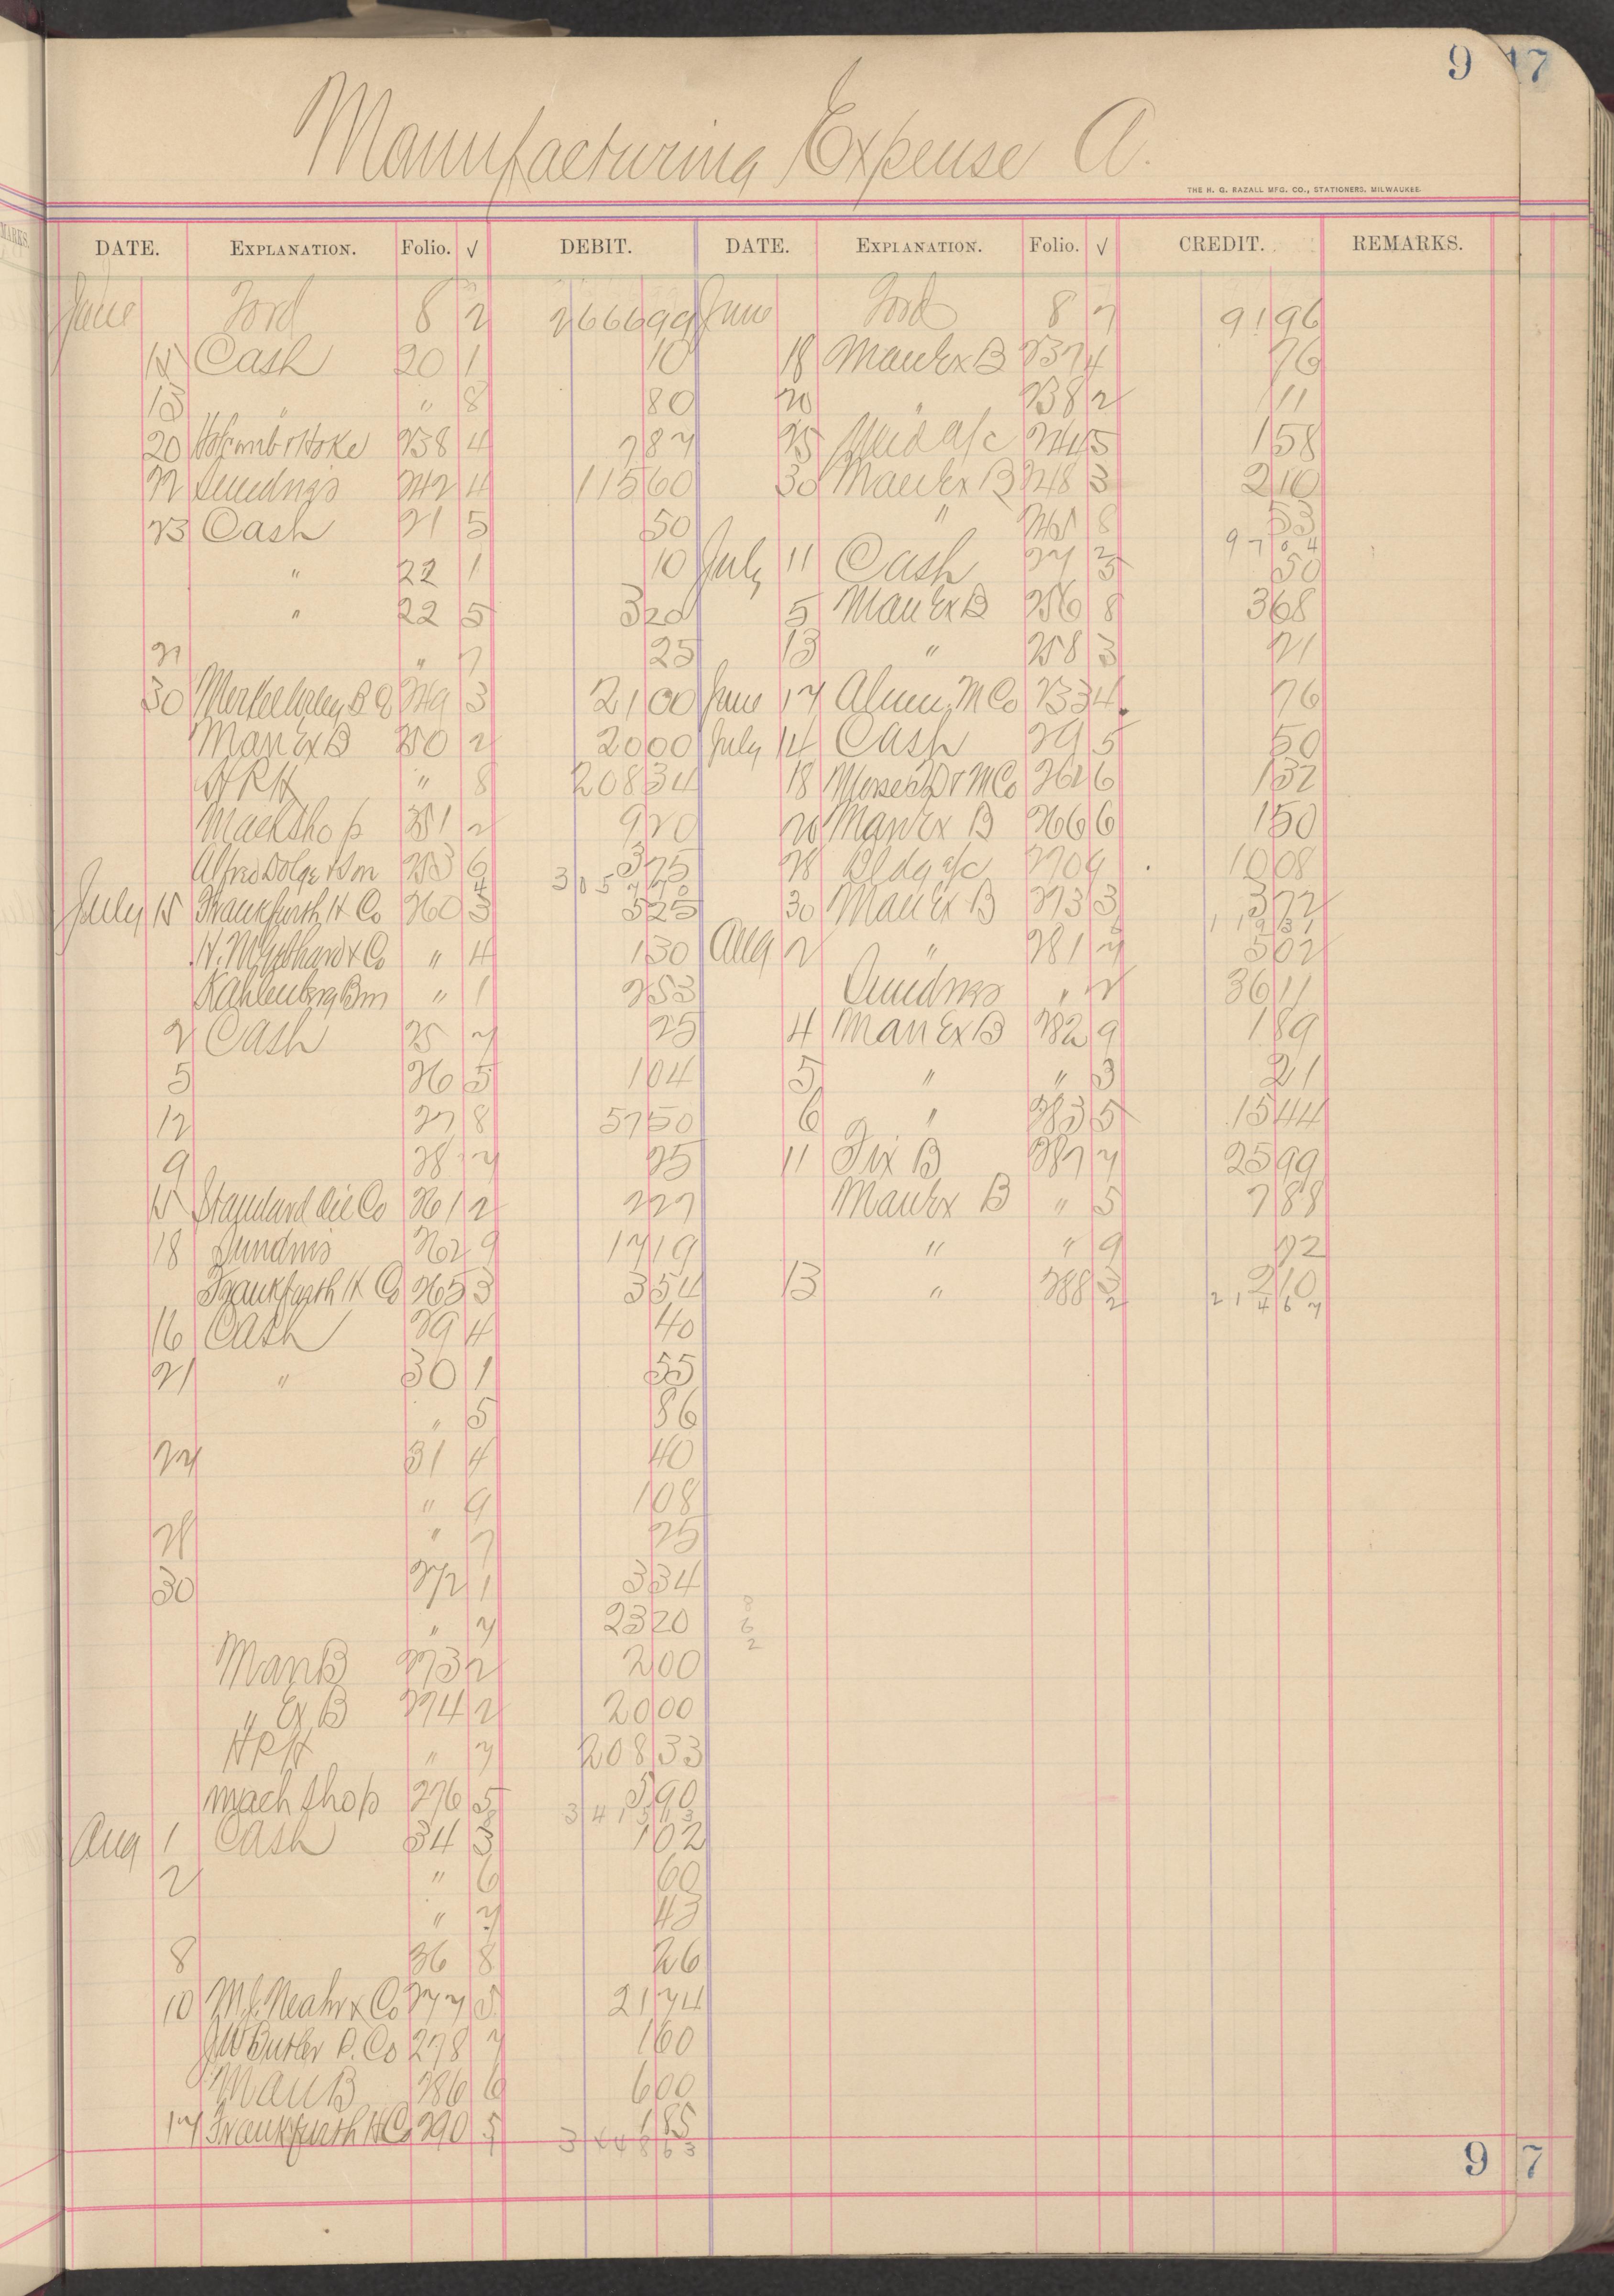 9 17
Manufacturing Expense A.
THE H. G. RAZALL MFG. CO., STATIONERS, MILWAUKEE.
DATE. EXPLANATION. Folio. √ DEBIT. DATE. EXPLANATION. Folio. √ CREDIT. REMARKS.
June Ford 8 2 2666 99 June Ford 8 7 91 96
Cash 20 1 10 18 Man Ex B 237 4 76
13 " " 8 80 20 " 238 2 11
20 Holcomb & Hoke 238 4 7 87 25 a/c 244 5 1 58
22 Sundries 242 4 115 60 30 Man Ex B 248 3 2 10
23 Cash 21 5 50 " 8 53
97 04
" 22 1 10 July 11 Cash 27 3 50
" 22 5 3 20 5 Man Ex B 256 8 3 68
" 7 25 13 " 258 3 21
30 249 3 21 00 June 17 Alum. M Co 233 4 76
Man Ex B 250 2 20 00 July 14 Cash 29 5 50
H R H " 8 208 34 18 M Co 262 6 1 32
Mach Shop 251 2 9 20 20 Man Ex B 266 6 1 50
Alfred Dolge & Son 253 6 3 75 28 Bldg a/c 270 9 10 08
3 0 5
July 15 Frankfurth H Co 260 3 5 25 30 Man Ex B 273 3 3 72
" 4 1 30 Aug 2 " 281 7 5 02
Kahlenberg Bros " 1 2 53 Sundries " 2 36 11
2 Cash 25 7 25 4 Man Ex B 282 9 1 89
5 26 5 1 04 5 " " 3 21
12 27 8 57 50 6 " 283 5 15 44
9 28 7 25 11 Fix B 287 7 25 99
15 Standard Oil Co 261 2 2 27 Man Ex B " 5 7 88
18 Sundries 262 9 17 19 " " 9 72
Frankfurth H Co 265 3 3 54 13 " 288 3 2 10
2 1 4 6 7
16 Cash 29 4 40
21 " 30 1 55
" 5 86
27 31 4 40
" 9 1 08
" 7 25
30 272 1 3 34
" 7 23 20
8
6
2
Man B 273 2 2 00
" Ex B 274 2 20 00
H R H " 7 208 33
Mach Shop 276 5 5 90
3 4 1 5
Aug 1 Cash 34 3 1 02
2 " 6 60
" 7 43
8 36 8 26
10 M. J. Neahr & Co 277 5 21 74
J W Butler P. Co 278 7 1 60
Man B 286 6 6 00
17 Frankfurth H Co 290 5 1 85
3 4 4 8 6 3
9 7